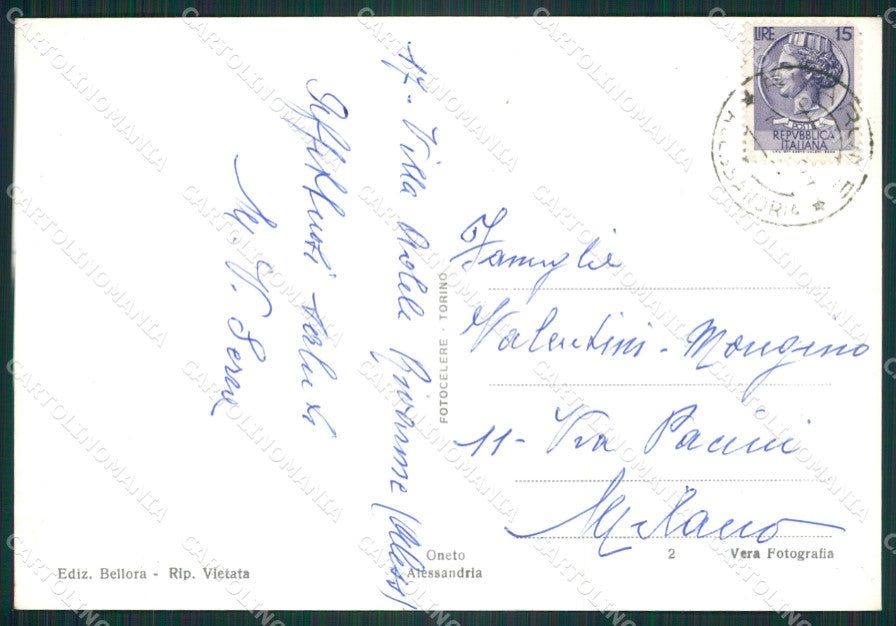 17 - Villa Adele (Aless)
Affettuosi saluti
LIRE 15
REPVBBLICA
ITALIANA
ALESSANDRIA
Famiglie
Valentini - Mongino
11 - Via Pacini
Milano
FOTOCELERE - TORINO
Ediz. Bellora - Rip. Vietata
Oneto
Alessandria
2 Vera Fotografia
CARTOLINOMANIA